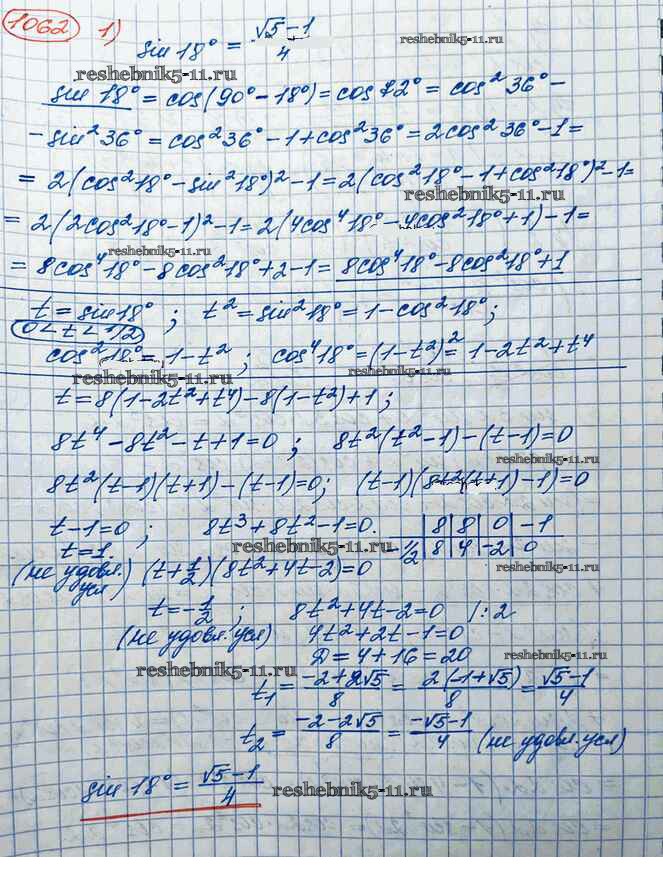 1062 1) sin 18° = (√5 - 1)/4
reshebnik5-11.ru
reshebnik5-11.ru
sin 18° = cos(90° - 18°) = cos 72° = cos² 36° -
- sin² 36° = cos² 36° - 1 + cos² 36° = 2cos² 36° - 1 =
= 2(cos² 18° - sin² 18°)² - 1 = 2(cos² 18° - 1 + cos² 18°)² - 1 =
reshebnik5-11.ru
= 2(2cos² 18° - 1)² - 1 = 2(4cos⁴ 18° - 4cos² 18° + 1) - 1 =
reshebnik5-11.ru
= 8cos⁴ 18° - 8cos² 18° + 2 - 1 = 8cos⁴ 18° - 8cos² 18° + 1
t = sin 18° ; t² = sin² 18° = 1 - cos² 18° ;
0 < t < 1/2
cos² 18° = 1 - t² ; cos⁴ 18° = (1 - t²)² = 1 - 2t² + t⁴
reshebnik5-11.ru
t = 8(1 - 2t² + t⁴) - 8(1 - t²) + 1 ;
8t⁴ - 8t² - t + 1 = 0 ; 8t²(t² - 1) - (t - 1) = 0
reshebnik5-11.ru
8t²(t - 1)(t + 1) - (t - 1) = 0 ; (t - 1)(8t²(t + 1) - 1) = 0
t - 1 = 0 ; 8t³ + 8t² - 1 = 0. | 8 | 8 | 0 | -1
t = 1. -1/2 | 8 | 4 | -2 | 0
reshebnik5-11.ru
(не удовл. усл) (t + 1/2)(8t² + 4t - 2) = 0
t = -1/2 ; 8t² + 4t - 2 = 0 |: 2
(не удовл. усл) 4t² + 2t - 1 = 0
D = 4 + 16 = 20
reshebnik5-11.ru
reshebnik5-11.ru
t₁ = (-2 + 2√5)/8 = 2(-1 + √5)/8 = (√5 - 1)/4
t₂ = (-2 - 2√5)/8 = (-√5 - 1)/4 (не удовл. усл)
sin 18° = (√5 - 1)/4
reshebnik5-11.ru